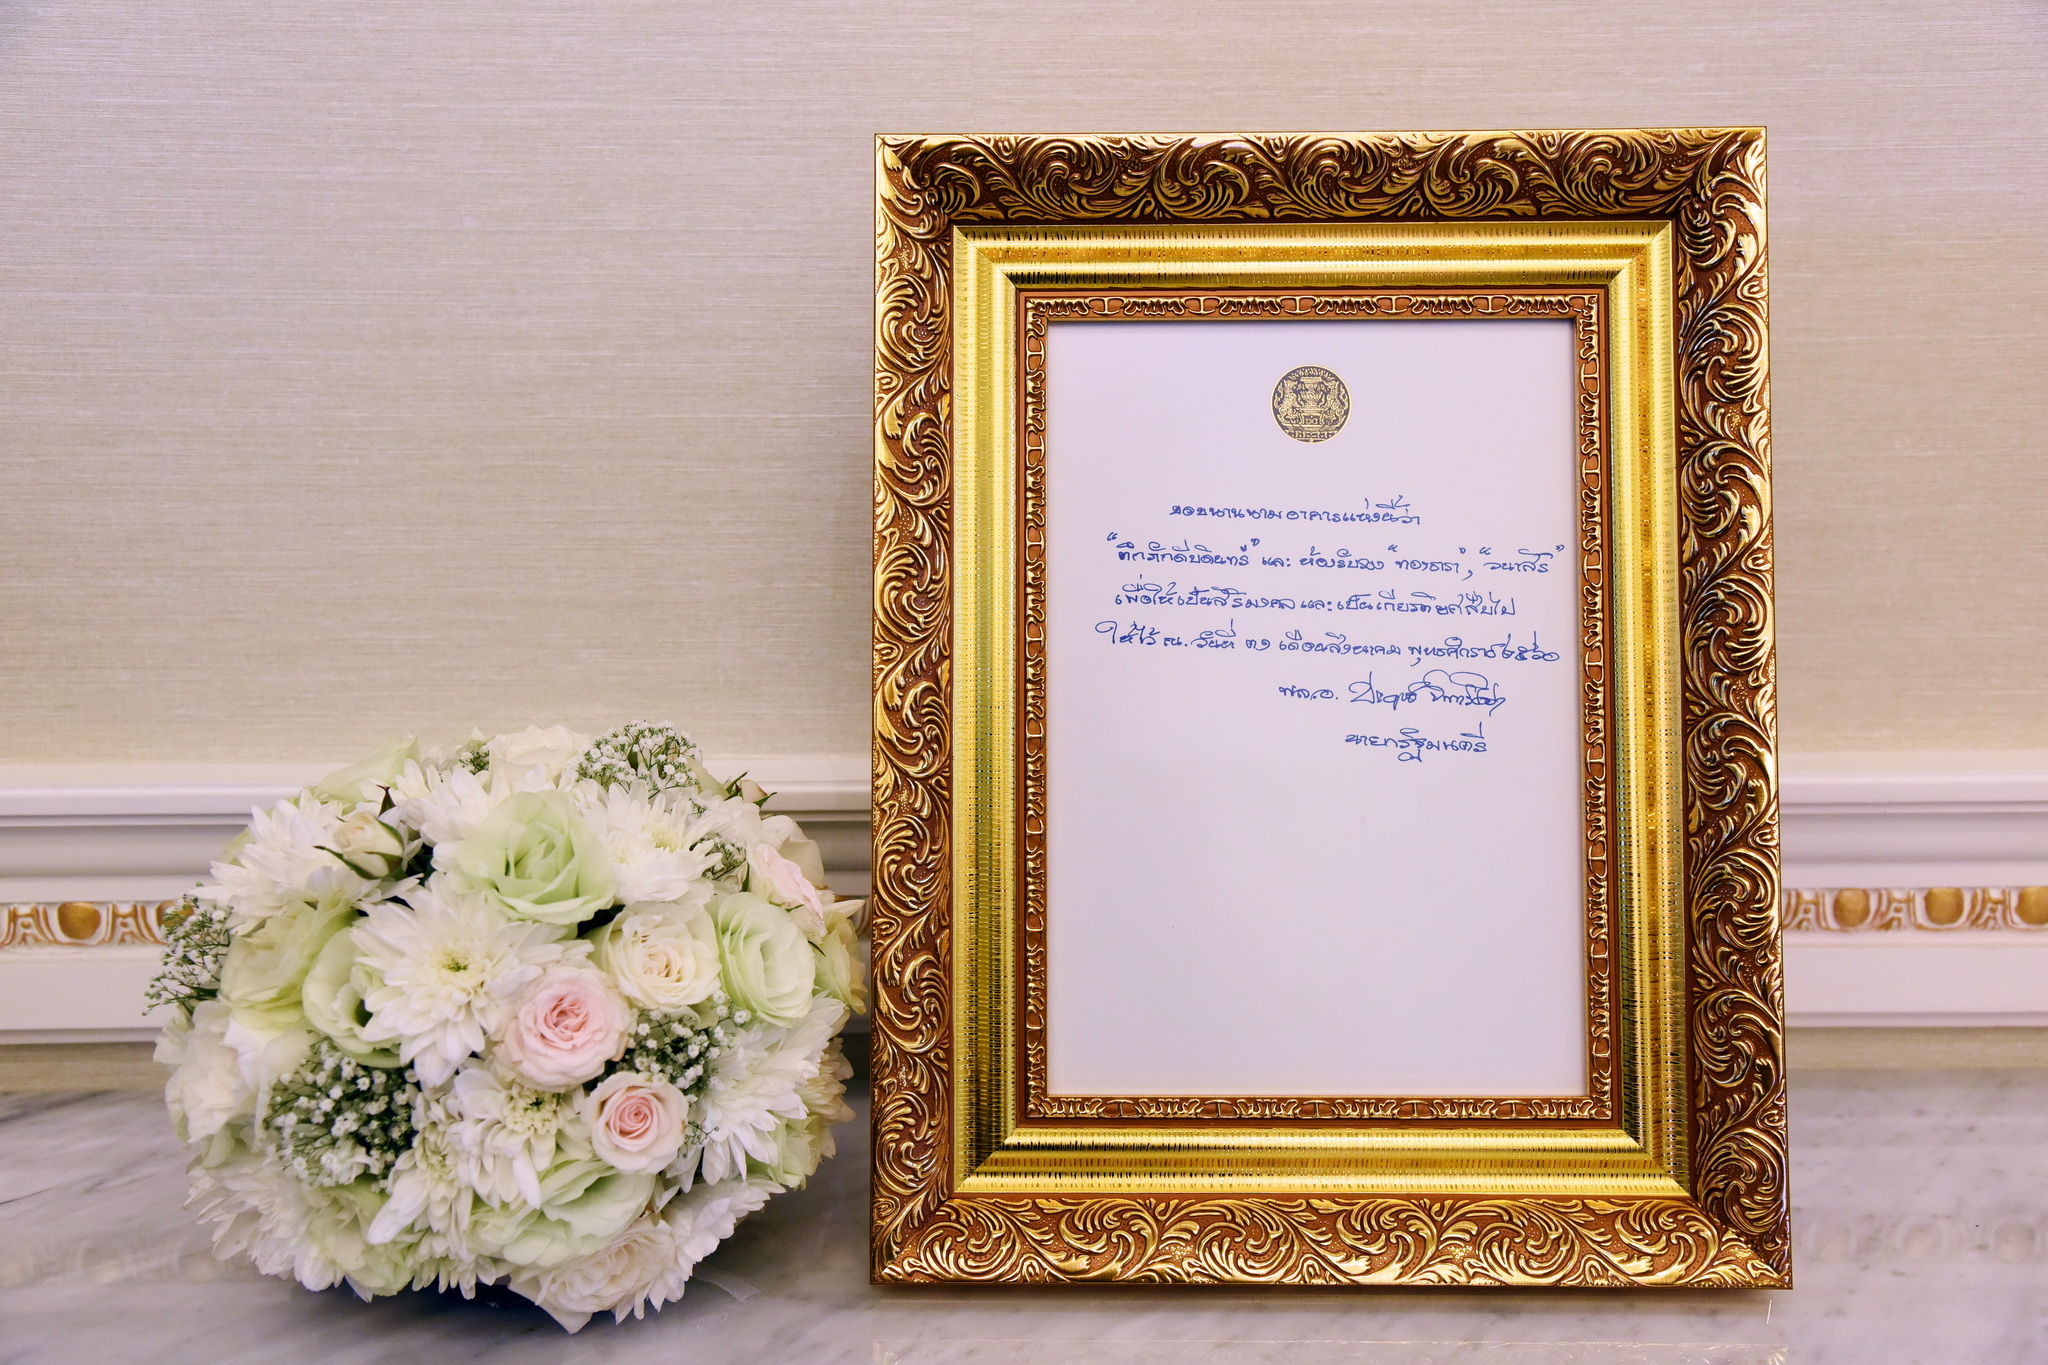 ขอขนานนามอาคารแห่งนี้ว่า
"ตึกภักดีบดินทร์" และ ห้องรับรอง "ทองธารา", "วนาสิริ"
เพื่อให้เป็นสิริมงคล และเป็นเกียรติยศสืบไป
ให้ไว้ ณ. วันที่ ๓๑ เดือนสิงหาคม พุทธศักราช ๒๕๖๐
พล.อ. ประยุทธ์ จันทร์โอชา
นายกรัฐมนตรี